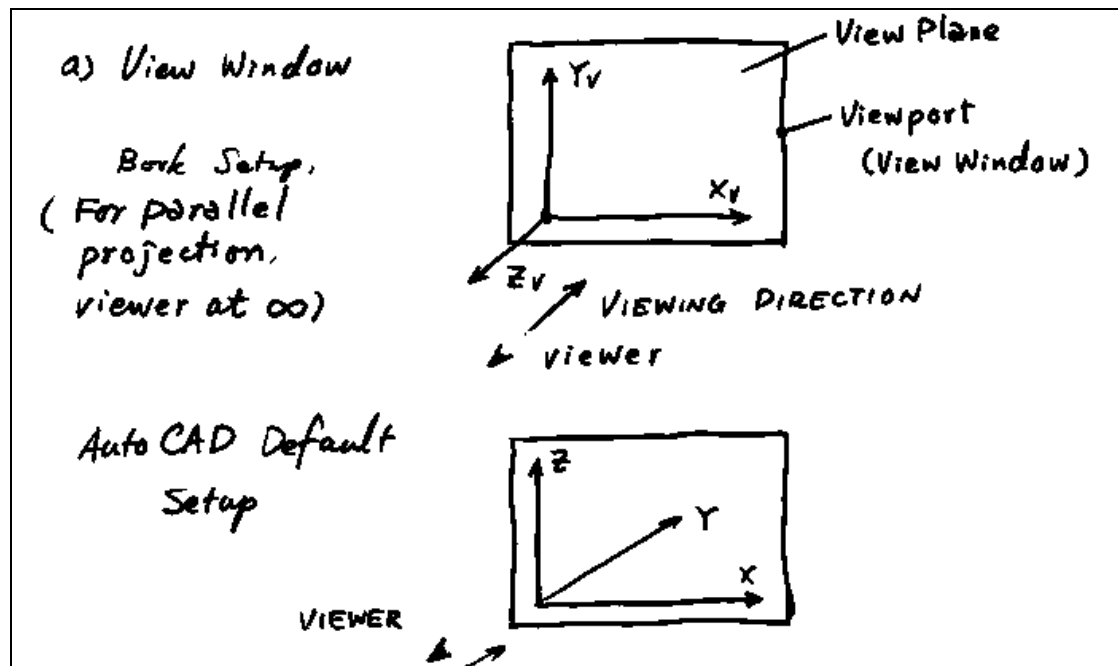 a) View Window
Book Setup.
( For parallel
projection,
viewer at ∞)
Yv
Xv
Zv
View Plane
Viewport
(View Window)
VIEWING DIRECTION
viewer
AutoCAD Default
Setup
Z
Y
X
VIEWER